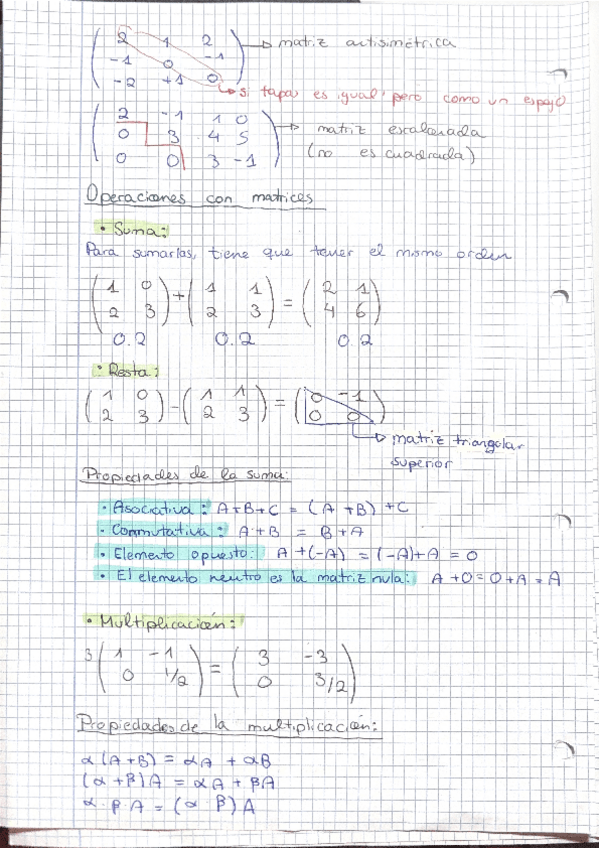 ( 2 1 2 ) → matriz antisimétrica
( -1 0 -1 )
( -2 +1 0 ) → si tapas es igual pero como un espejo
( 2 -1 1 0 )
( 0 3 4 5 ) → matriz escalonada
( 0 0 3 -1 ) (no es cuadrada)
Operaciones con matrices
• Suma:
Para sumarlas, tiene que tener el mismo orden
( 1 0 ) + ( 1 1 ) = ( 2 1 )
( 2 3 ) ( 2 3 ) ( 4 6 )
0.2 0.2 0.2
• Resta:
( 1 0 ) - ( 1 1 ) = ( 0 -1 )
( 2 3 ) ( 2 3 ) ( 0 0 )
→ matriz triangular
superior
Propiedades de la suma:
• Asociativa: A+B+C = (A+B)+C
• Conmutativa: A+B = B+A
• Elemento opuesto: A+(-A) = (-A)+A = 0
• El elemento neutro es la matriz nula: A+0=0+A=A
• Multiplicación:
3 ( 1 -1 ) = ( 3 -3 )
( 0 1/2 ) ( 0 3/2 )
Propiedades de la multiplicación:
α(A+B) = αA + αB
(α+β)A = αA + βA
α·β·A = (α·β)A